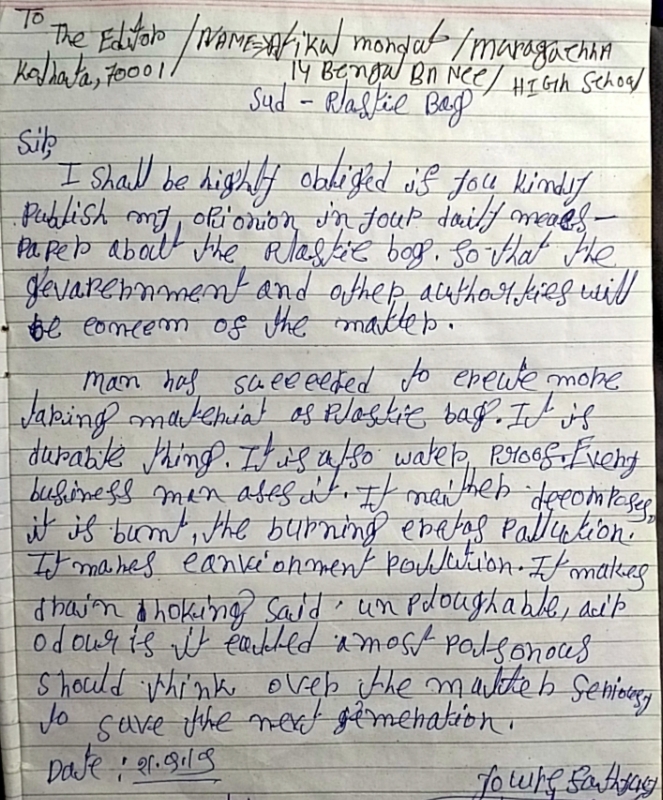 To
The Editor /NAME⇒Atikul mongal / maragachha
Kolkata, 70001/ 14 Bengal Bn Nee/ HIGH School
Sub - Plastic Bag
Sir,
I Shall be highly obliged if you kindly
Publish my opionion in your daily
Paper about the Plastic bag. So that the
gevarebnment and other authorities will
be concern of the matter.
Man has succeeded to create more
taking material as Plastic bag. It is
durable thing. It is also water proof. Every
business man ases it. It naither decomposes,
it is burnt, the burning cretas Pallution.
It makes eankionment Pollution. It makes
drain choking Said. unploughable, air
odour is it called amost Poisonous
should think over the matter Seriousy
to save the next gemenation.
Date :
Yours Faithfully